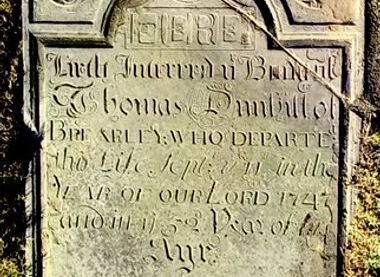 HERE
Lieth Interred yᵉ Body of
Thomas Dunhill of
BREARLEY: WHO DEPARTE
this Life Sepᵗ yᵉ 11 in the
YEAR OF OUR LORD 1747
and in yᵉ 52 Year of his
Age